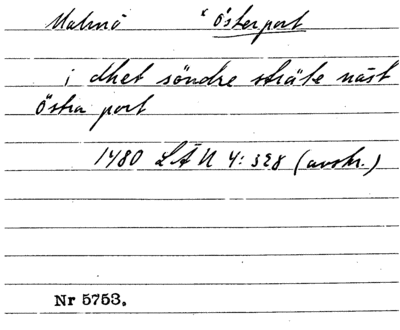 Malmö x Österport
i dhet söndre sträte näst
Östra port
1480 LÄU 4: 328 (avskr.)
Nr 5753.